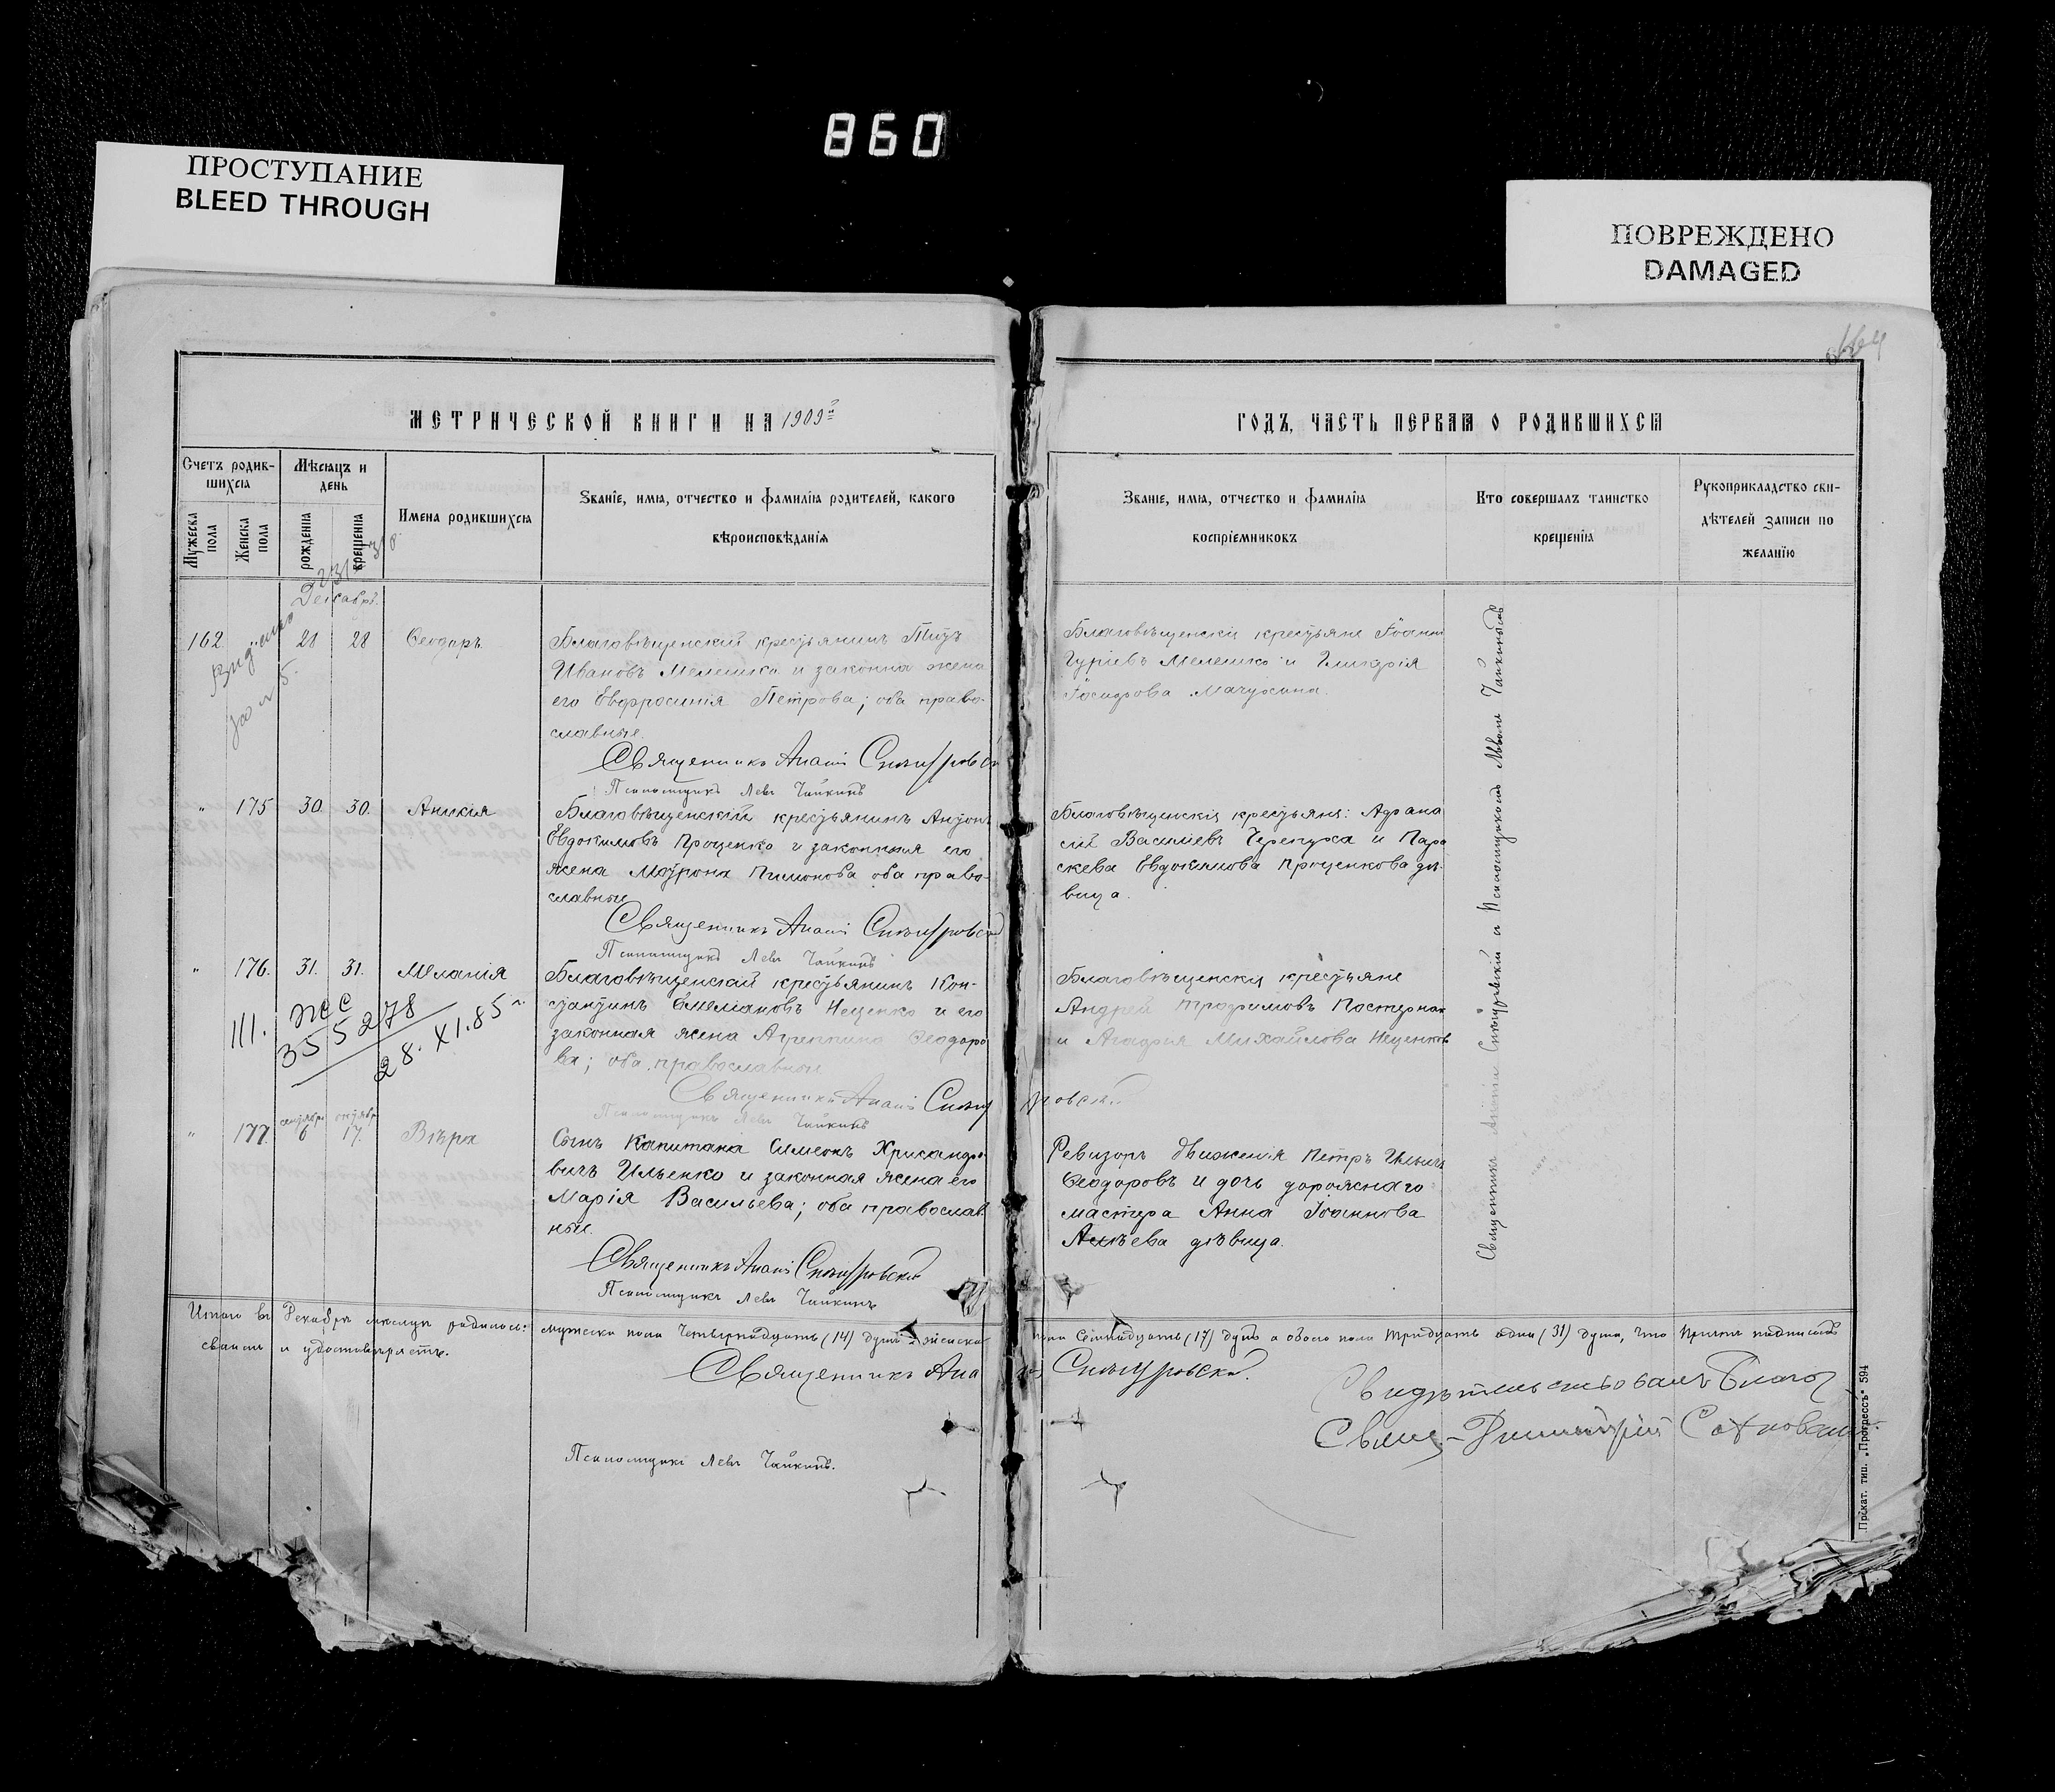 860
ПРОСТУПАНИЕ
BLEED THROUGH
ПОВРЕЖДЕНО
DAMAGED
МЕТРИЧЕСКОЙ КНИГИ НА 1909
ГОДЪ, ЧАСТЬ ПЕРВАЯ О РОДИВШИХСЯ
Счетъ родив-
шихся
Мужеска пола
Женска пола
Мѣсяцъ и
день
рожденія
крещенія
Имена родившихся
Званіе, имя, отчество и фамилія родителей, какого
вѣроисповѣданія
Званіе, имя, отчество и фамилія
воспріемниковъ
Кто совершалъ таинство
крещенія
Рукоприкладство сви-
дѣтелей записи по
желанію
Декабрь
162. 28 Ѳеодоръ
Благовѣщенскій крестьянинъ Титъ
Ивановъ Мелешко и законна жена
его Евфросинія Петрова; оба право-
славные.
Священникъ
Псаломщикъ Левъ Чайкинъ
Благовѣщенскія крестьяне Іоаннъ
Гуріевъ Мелешко и
" 175 30. 30. Аникія
Благовѣщенскій крестьянинъ Антонъ
Евдокимовъ Проценко и законная его
жена Матрона Пимонова оба право-
славные
Священникъ
Псаломщикъ Левъ Чайкинъ
Благовѣщенскія крестьяне:
Василіевъ Черепуха и Пара
скева Евдокимова Проценкова дѣ-
вица.
" 176. 31. 31. Меланія
Благовѣщенскій крестьянинъ Кон-
стантинъ Емеліановъ Нещенко и его
законная жена Агреппина Ѳеодоро
ва; оба православные
Священникъ
Псаломщикъ Левъ Чайкинъ
Благовѣщенскія крестьяне
Андрей Трофимовъ Пастернак
и Агафія Михайлова Нещенков
III. ЖС
355278
28. XI.85 г.
" 177 сентябрь 6 октябрь 17. Вѣра
Сынъ Капитана Симеонъ Хрисандро
вичъ Ильенко и законная жена его
Марія Васильева; оба православ
ные.
Священникъ
Псаломщикъ Левъ Чайкинъ
Ревизоръ движенія Петръ Ильичъ
Ѳеодоровъ и дочь дорожнаго
мастера Анна Іоаннова
дѣвица.
Священникъ и Псаломщикомъ Львомъ Чайкинымъ
Итого въ Декабрѣ мѣсяцѣ родилось: мужеска пола Четырнадцать (14) душъ женска пола Семнадцать (17) душъ а обоего пола тридцать одна (31) душа, что Причтъ подписомъ
своимъ и удостовѣряетъ.
Священникъ
Псаломщикъ Левъ Чайкинъ.
Свидѣтельствовалъ
Свящ. Димитрій
Прокат. тип. „Прогрессъ“ 594